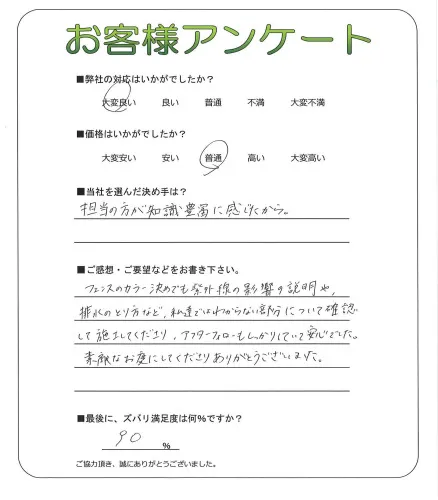 お客様アンケート
■弊社の対応はいかがでしたか？
大変良い 良い 普通 不満 大変不満
■価格はいかがでしたか？
大変安い 安い 普通 高い 大変高い
■当社を選んだ決め手は？
担当の方が知識豊富に感じたから。
■ご感想・ご要望などをお書き下さい。
フェンスのカラー決めでも紫外線の影響の説明や、
排水のとり方など、私達ではわからない部分について確認
して施工してくださり、アフターフォローもしっかりしていて安心でした。
素敵なお庭にしてくださりありがとうございました。
■最後に、ズバリ満足度は何％ですか？
90 %
ご協力頂き、誠にありがとうございました。